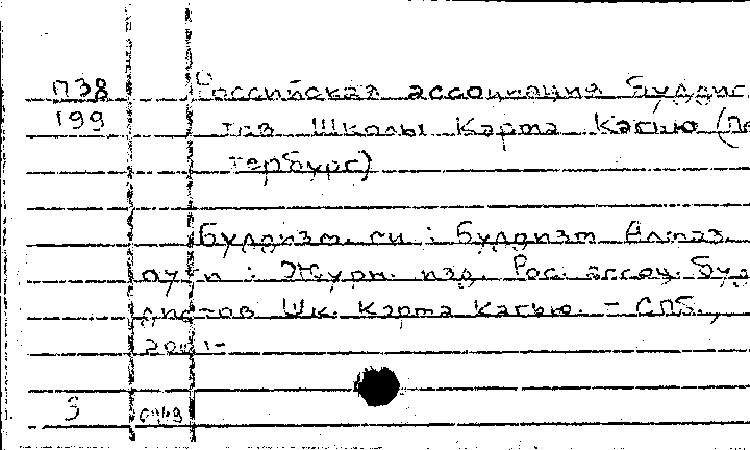 П38 Российская ассоциация буддис
199 тов Школы Карма Кагью (Пе
тербург)
Буддизм. ru : Буддизм Алмаз.
пути : Журн. изд. Рос. ассоц. Буд
дистов Шк. Карма Кагью. – СПб.,
2001-
3